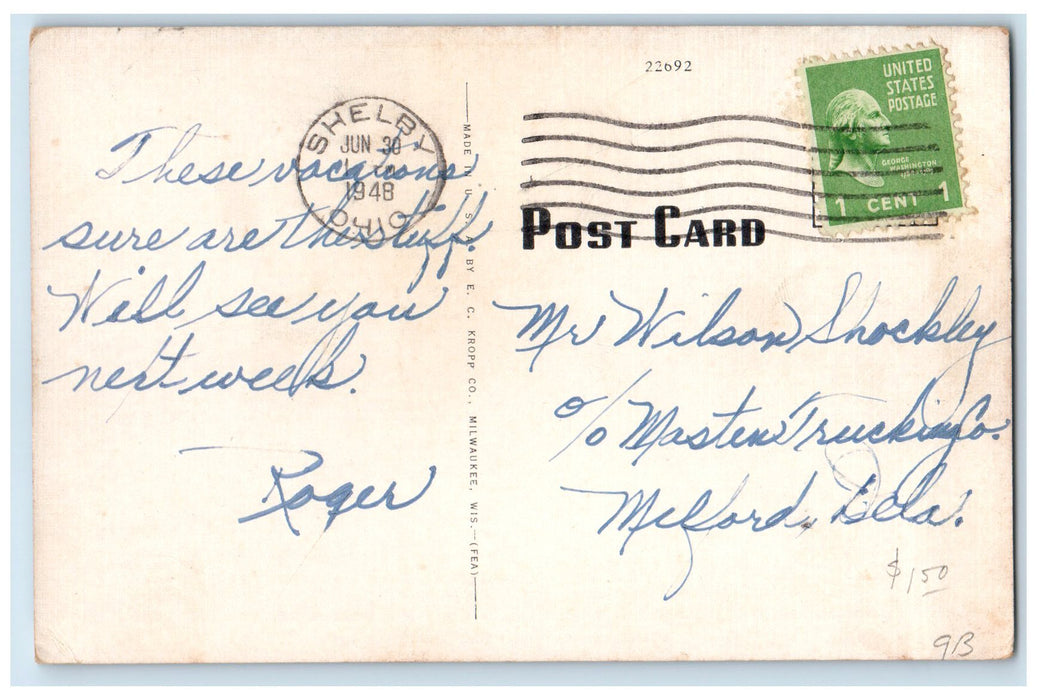 22692
UNITED
STATES
POSTAGE
GEORGE
WASHINGTON
1 CENT 1
SHELBY
JUN 30
1948
OHIO
POST CARD
These vacations
sure are the stuff.
Will see you
next week.
Roger
MADE IN U. S. A. BY E. C. KROPP CO., MILWAUKEE, WIS.—(FEA)
Mr Wilson Shockley
c/o Masten Trucking Co.
Milford, Dela.
$1.50
9B